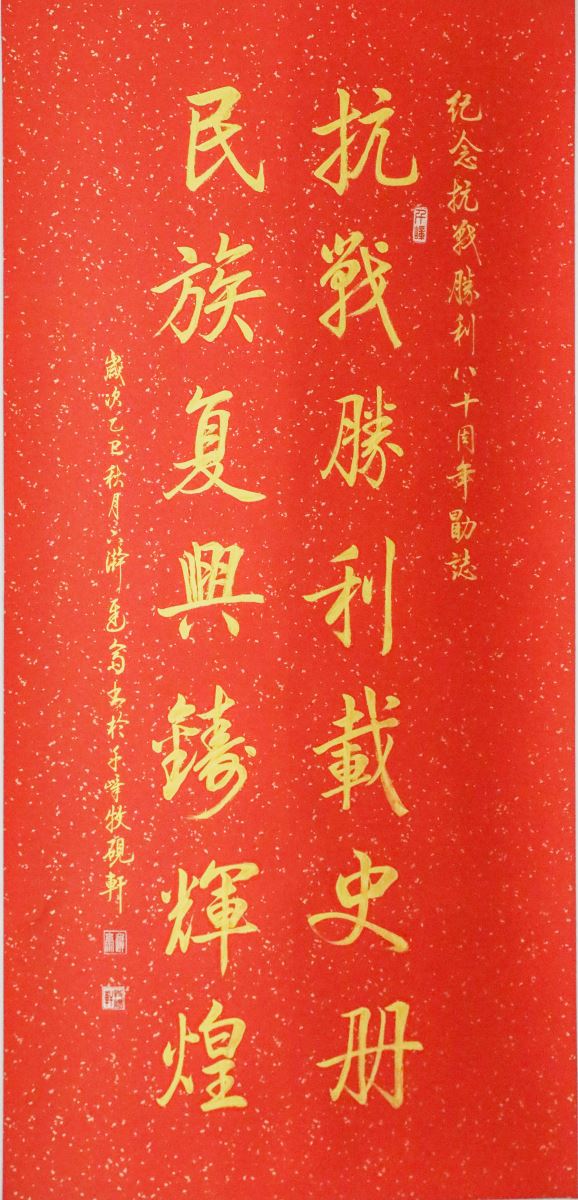 纪念抗戰勝利八十周年勖誌
抗戰勝利載史册
民族复興鑄輝煌
歲次乙巳秋月六游逸翁书於千峰牧硯軒